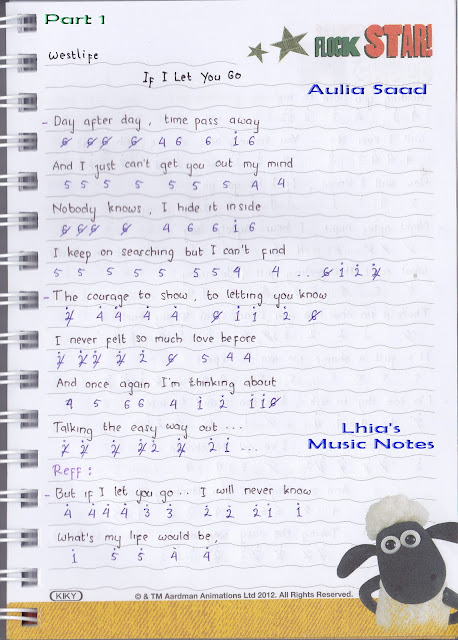 Part 1
Westlife
FLOCK STAR!
If I Let You Go
Aulia Saad
- Day after day, time pass away
6̸ 6̸6̸ 6̸ 4 6 6 1̇ 6
And I just can't get you out my mind
5 5 5 5 5 5 5 4 4
Nobody knows, I hide it inside
6̸6̸6̸ 6̸ 4 6 6 1̇ 6
I keep on searching but I can't find
5 5 5 5 5 5 5 4 4 ... 6̸ 1̇ 2̇ 2̸̇
- The courage to show, to letting you know
2̸̇ 4̇ 4̇ 4̇ 4̇ 6̸ 1̇ 1̇ 2̇ 6̸
I never felt so much love before
2̸̇ 2̸̇2̸̇ 2̸̇ 2̇ 6̸ 5 4 4
And once again I'm thinking about
4 5 6 6 4 1̇ 2̇ 1̇1̇6̸
Talking the easy way out ...
2̸̇ 2̸̇ 2̸̇ 2̸̇2̇ 2̸̇ 2̇ 1̇ ...
Lhia's
Music Notes
Reff :
- But if I let you go .. I will never know
4̇ 4̇ 4̇ 4̇ 3̇ 3̇ 2̇ 2̇ 2̇1̇ 1̇
What's my life would be,
1̇ 5̇ 5̇ 4̇ 4̇
KIKY
© & TM Aardman Animations Ltd 2012. All Rights Reserved.